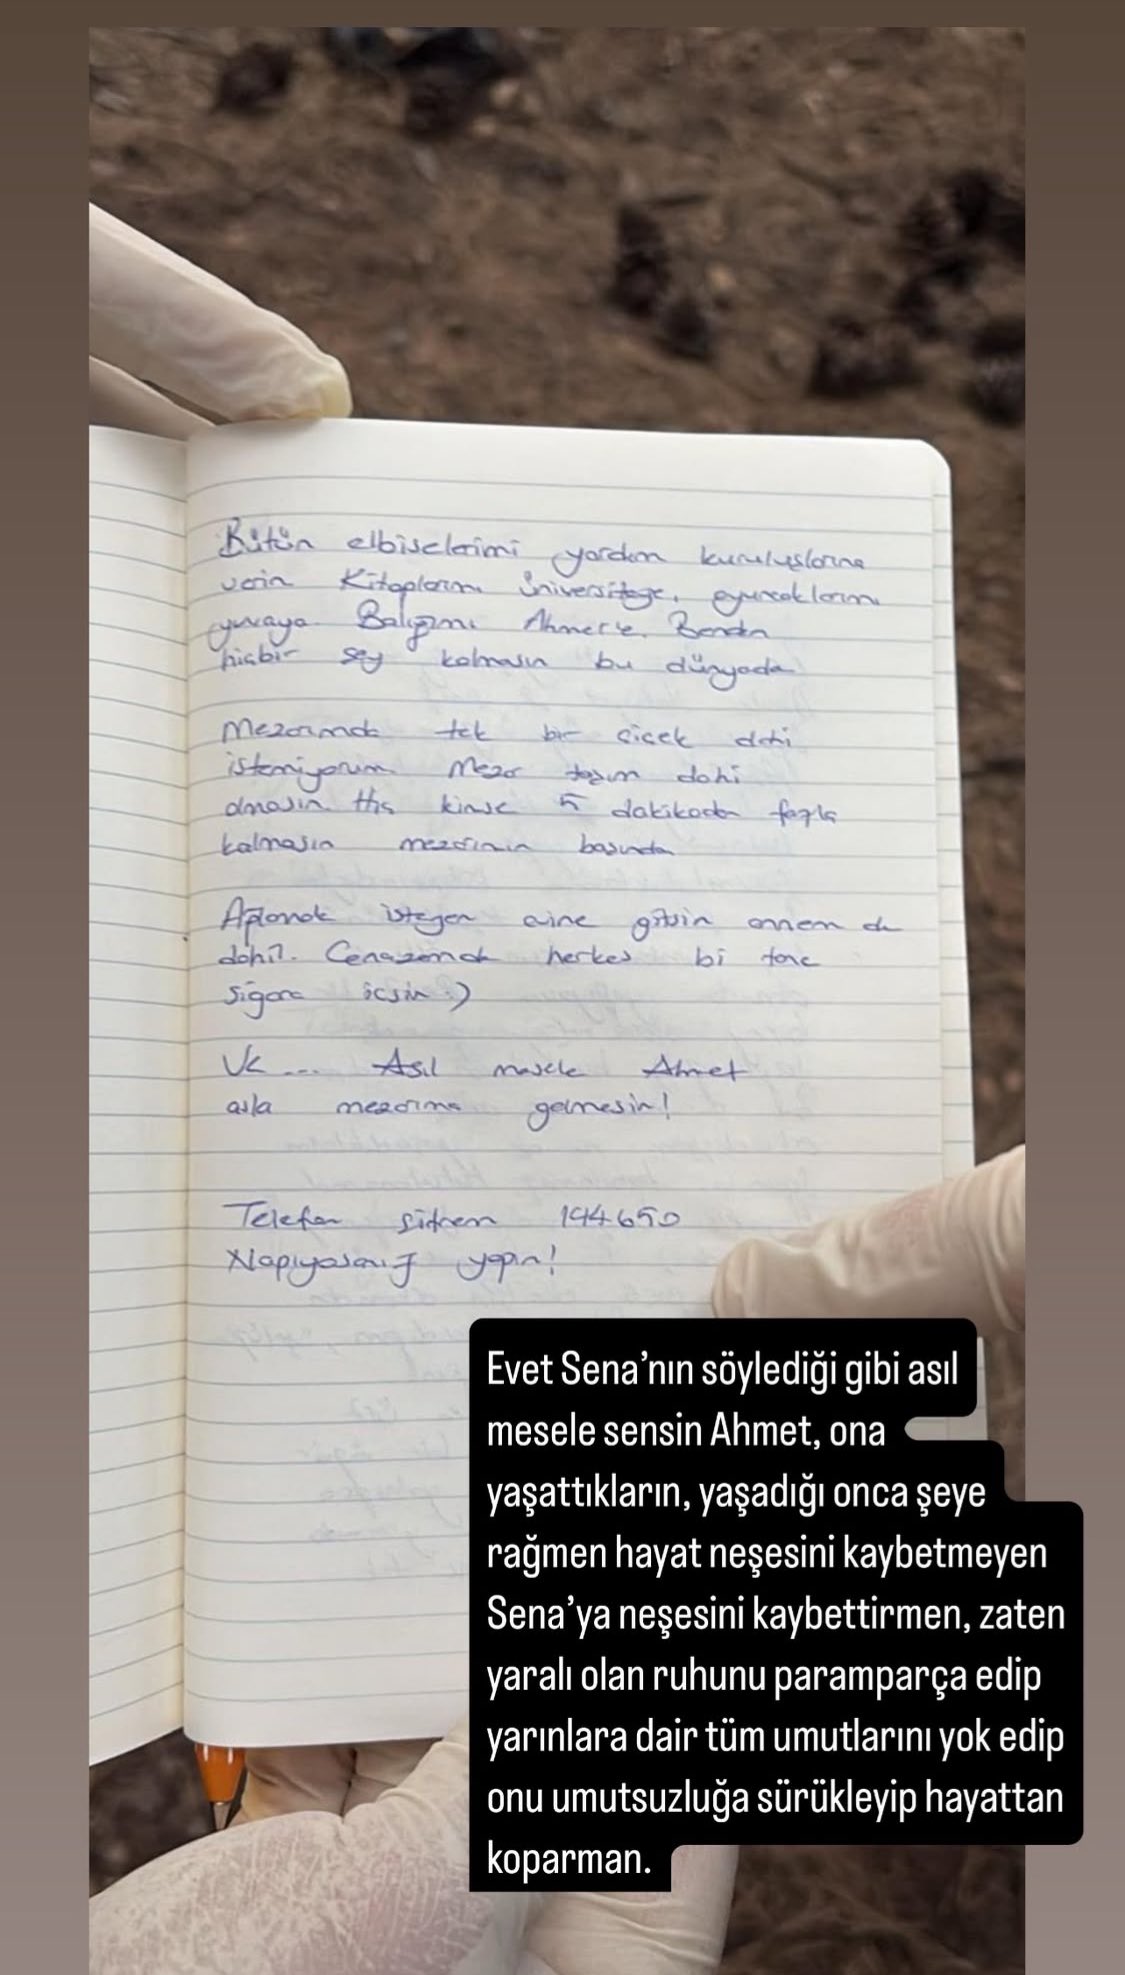 Bütün elbiselerimi yardım kuruluşlarına
verin Kitaplarımı Üniversiteye, oyuncaklarımı
yuvaya Balığımı Ahmet'e. Benden
hiçbir şey kalmasın bu dünyada
Mezarımda tek bir çiçek dahi
istemiyorum Mezar taşım dahi
olmasın Hiç kimse 5 dakikadan fazla
kalmasın mezarımın başında
Ağlamak isteyen evine gitsin annem de
dahil. Cenazemde herkes bi tane
sigara içsin :)
Ve... Asıl mesele Ahmet
asla mezarıma gelmesin!
Telefon şifrem 194650
Napıyosanız yapın!
Evet Sena’nın söylediği gibi asıl
mesele sensin Ahmet, ona
yaşattıkların, yaşadığı onca şeye
rağmen hayat neşesini kaybetmeyen
Sena’ya neşesini kaybettirmen, zaten
yaralı olan ruhunu paramparça edip
yarınlara dair tüm umutlarını yok edip
onu umutsuzluğa sürükleyip hayattan
koparman.